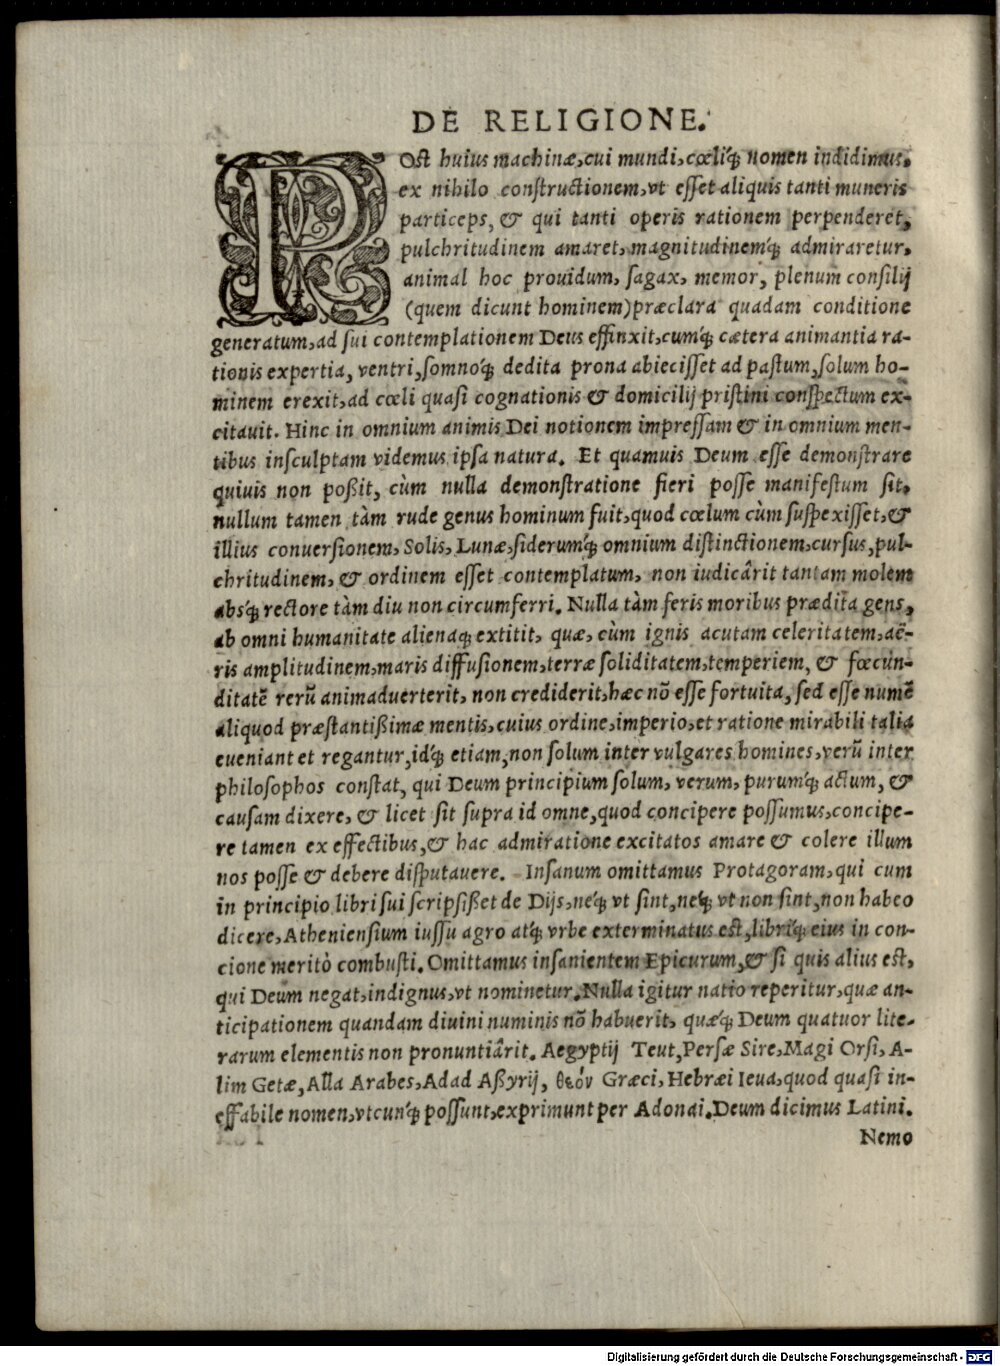 DE RELIGIONE.
POst huius machinæ, cui mundi, cœliq́; nomen indidimus,
ex nihilo constructionem, vt esset aliquis tanti muneris
particeps, & qui tanti operis rationem perpenderet,
pulchritudinem amaret, magnitudinemq́; admiraretur,
animal hoc prouidum, sagax, memor, plenum consilij
(quem dicunt hominem) præclara quadam conditione
generatum, ad sui contemplationem Deus effinxit, cumq́; cætera animantia ra-
tionis expertia, ventri, somnoq́; dedita prona abiecisset ad pastum, solum ho-
minem erexit, ad cœli quasi cognationis & domicilij pristini conspectum ex-
citauit. Hinc in omnium animis Dei notionem impressam & in omnium men-
tibus insculptam videmus ipsa natura. Et quamuis Deum esse demonstrare
quiuis non poßit, cùm nulla demonstratione fieri posse manifestum sit,
nullum tamen tàm rude genus hominum fuit, quod cœlum cùm suspexisset, &
illius conuersionem, Solis, Lunæ, siderumq́; omnium distinctionem, cursus, pul-
chritudinem, & ordinem esset contemplatum, non iudicârit tantam molem
absq́; rectore tàm diu non circumferri. Nulla tàm feris moribus prædita gens,
ab omni humanitate alienaq; extitit, quæ, cùm ignis acutam celeritatem, aë-
ris amplitudinem, maris diffusionem, terræ soliditatem, temperiem, & fœcun-
ditatẽ rerũ animaduerterit, non crediderit, hæc nõ esse fortuita, sed esse numẽ
aliquod præstantißimæ mentis, cuius ordine, imperio, et ratione mirabili talia
eueniant et regantur, idq́; etiam, non solum inter vulgares homines, verũ inter
philosophos constat, qui Deum principium solum, verum, purumq́; actum, &
causam dixere, & licet sit supra id omne, quod concipere possumus, concipe-
re tamen ex effectibus, & hac admiratione excitatos amare & colere illum
nos posse & debere disputauere. Insanum omittamus Protagoram, qui cum
in principio libri sui scripsißet de Dijs, neq́; vt sint, neq́; vt non sint, non habeo
dicere, Atheniensium iussu agro atq́; vrbe exterminatus est, libriq́; eius in con-
cione meritò combusti. Omittamus insanientem Epicurum, & si quis alius est,
qui Deum negat, indignus, vt nominetur. Nulla igitur natio reperitur, quæ an-
ticipationem quandam diuini numinis nõ habuerit, quæq́; Deum quatuor lite-
rarum elementis non pronuntiârit. Aegyptij Teut, Persæ Sire, Magi Orsi, A-
lim Getæ, Alla Arabes, Adad Aßyrij, θεόν Græci, Hebræi Ieua, quod quasi in-
effabile nomen, vtcunq́; possunt, exprimunt per Adonai. Deum dicimus Latini.
Nemo
Digitalisierung gefördert durch die Deutsche Forschungsgemeinschaft - DFG